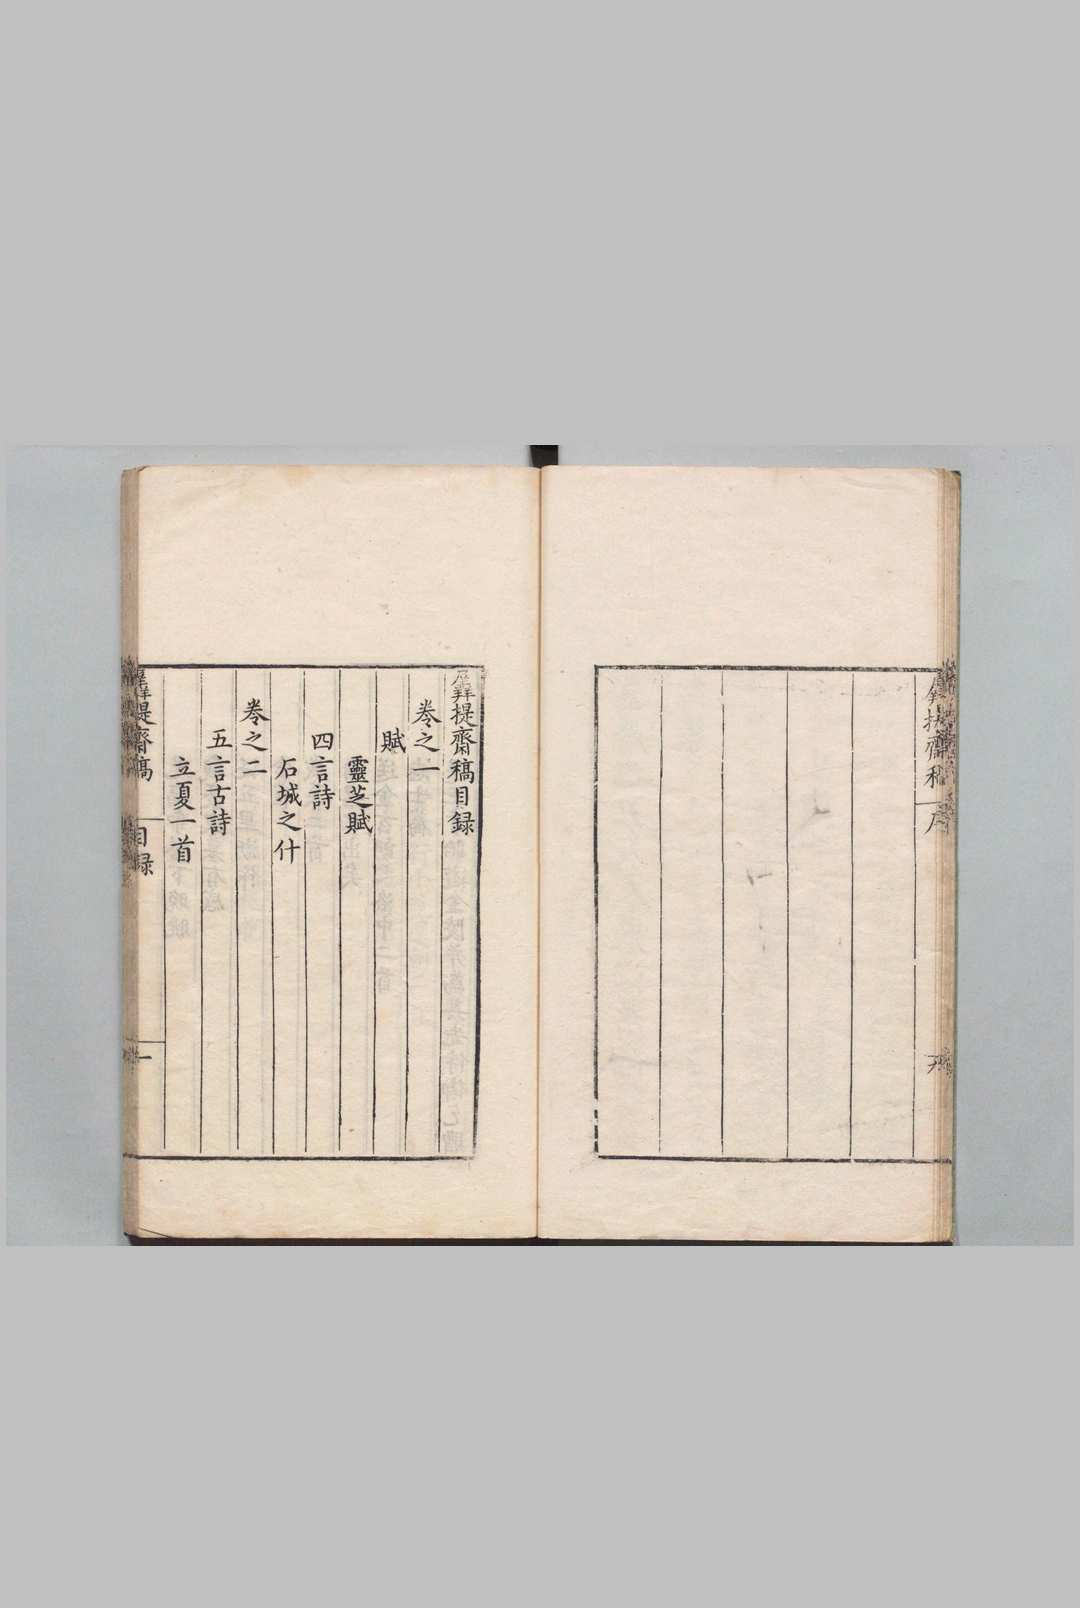 羼提齋稿
羼提齋稿目録
卷之一
賦
靈芝賦
四言詩
石城之什
卷之二
五言古詩
立夏一首
羼提齋稿 目録 一